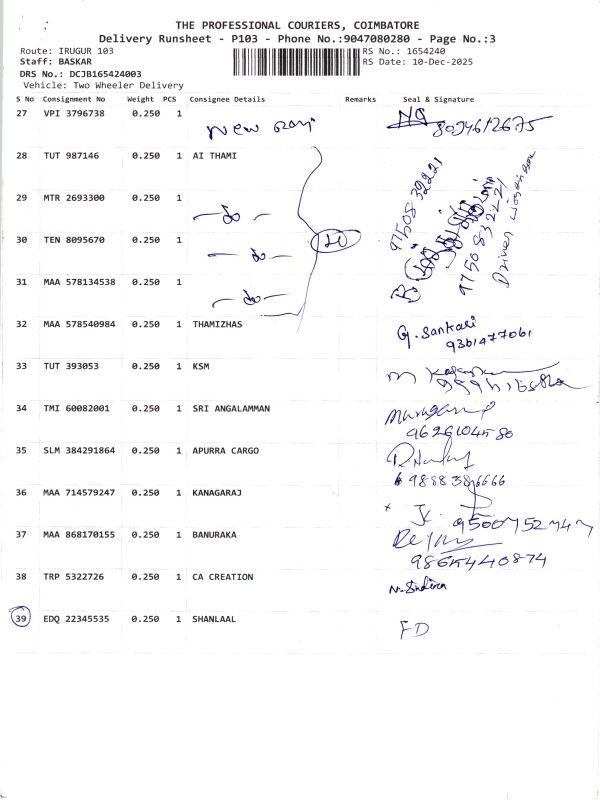 THE PROFESSIONAL COURIERS, COIMBATORE
Delivery Runsheet - P103 - Phone No.:9047080280 - Page No.:3
Route: IRUGUR 103
RS No.: 1654240
Staff: BASKAR
RS Date: 10-Dec-2025
DRS No.: DCJB165424003
Vehicle: Two Wheeler Delivery
S No Consignment No Weight PCS Consignee Details Remarks Seal & Signature
27 VPI 3796738 0.250 1 New 8074612675
28 TUT 987146 0.250 1 AI THAMI
29 MTR 2693300 0.250 1
30 TEN 8095670 0.250 1
31 MAA 578134538 0.250 1
9750832221
Driver
32 MAA 578540984 0.250 1 THAMIZHAS G. Sankari
9361477061
33 TUT 393053 0.250 1 KSM
34 TMI 60082001 0.250 1 SRI ANGALAMMAN
9626104580
35 SLM 384291864 0.250 1 APURRA CARGO
9888386666
36 MAA 714579247 0.250 1 KANAGARAJ
9500752747
37 MAA 868170155 0.250 1 BANURAKA
9865440874
38 TRP 5322726 0.250 1 CA CREATION
39 EDQ 22345535 0.250 1 SHANLAAL FD